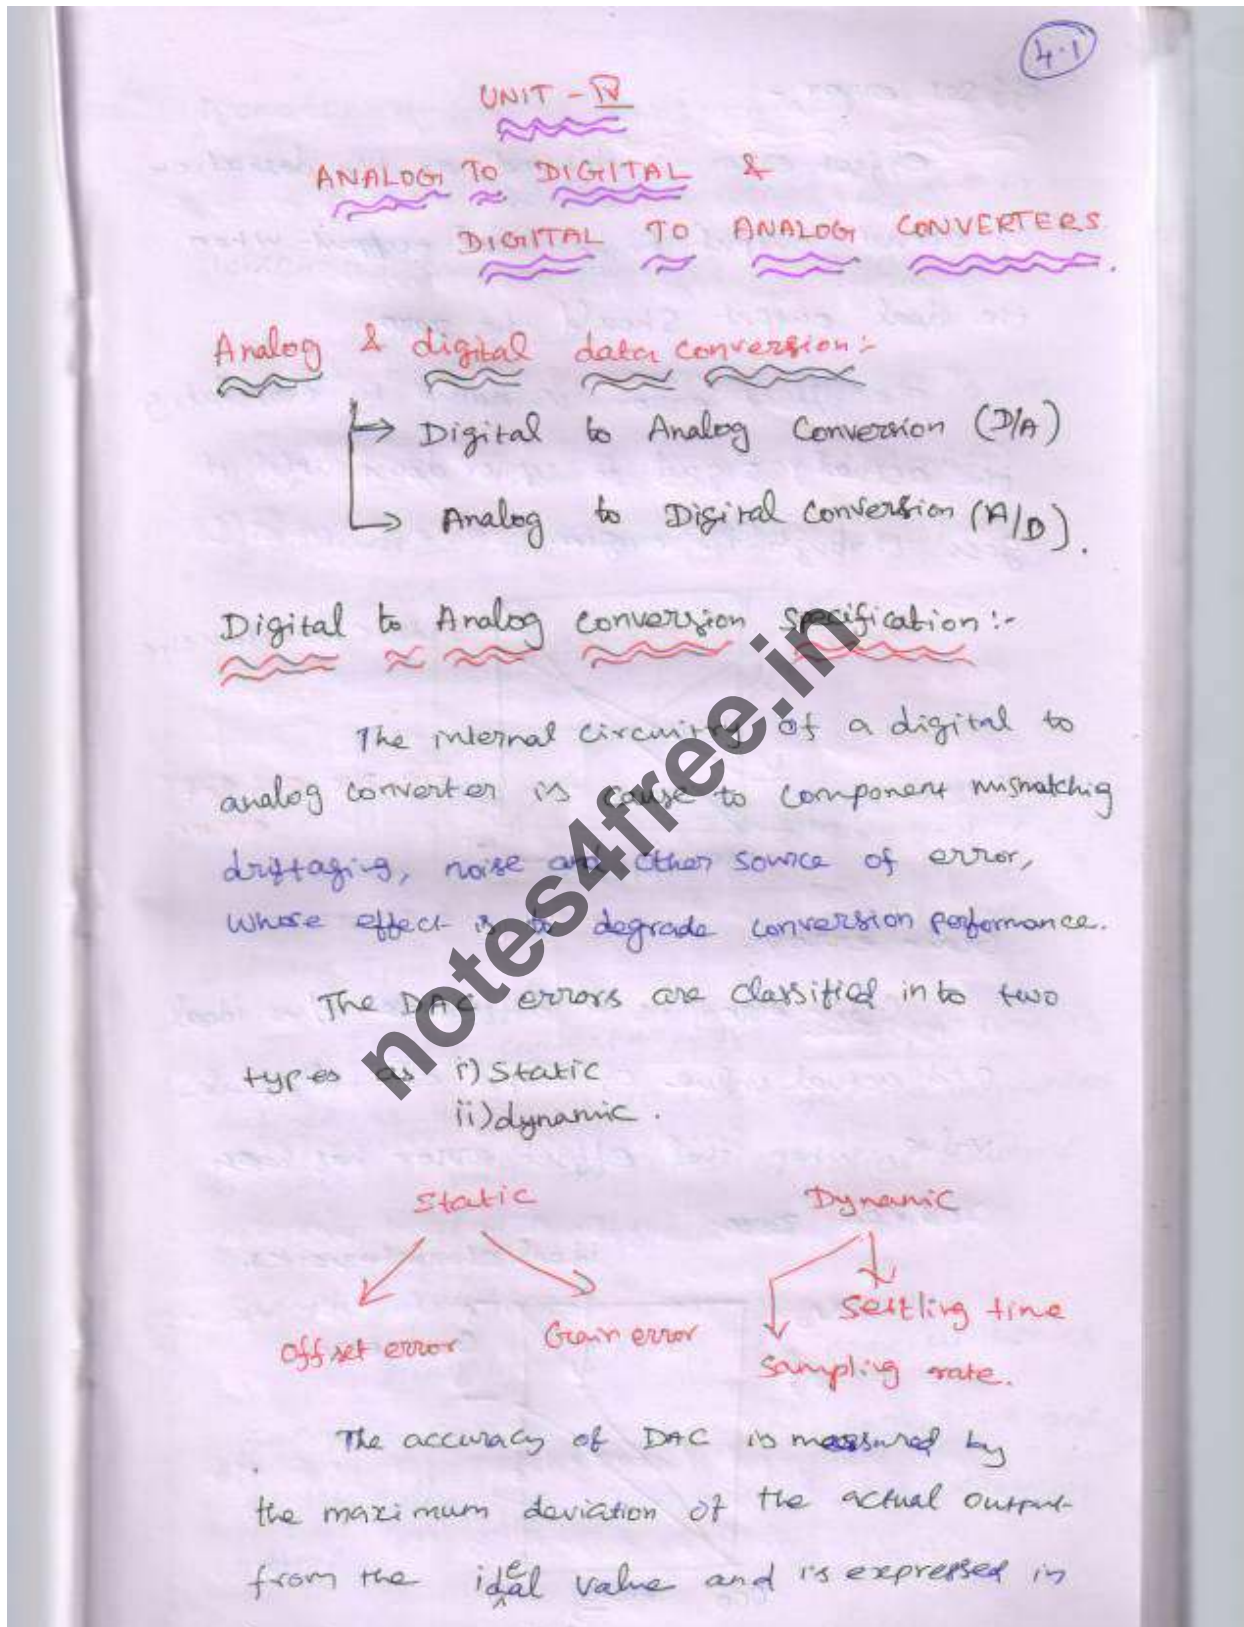 4.1
UNIT - IV
ANALOG TO DIGITAL &
DIGITAL TO ANALOG CONVERTERS.
Analog & digital data conversion:-
Digital to Analog Conversion (D/A)
Analog to Digital Conversion (A/D).
Digital to Analog conversion specification:-
The internal circuitry of a digital to
analog converter is cause to component mismatching
driftaging, noise and other source of error,
whose effect is to degrade conversion performance.
The DAC errors are classified into two
types as i) Static
ii) dynamic.
Static Dynamic
Settling time
Offset error Gain error
Sampling rate.
The accuracy of DAC is measured by
the maximum deviation of the actual output
from the ideal value and is expressed in
notes4free.in